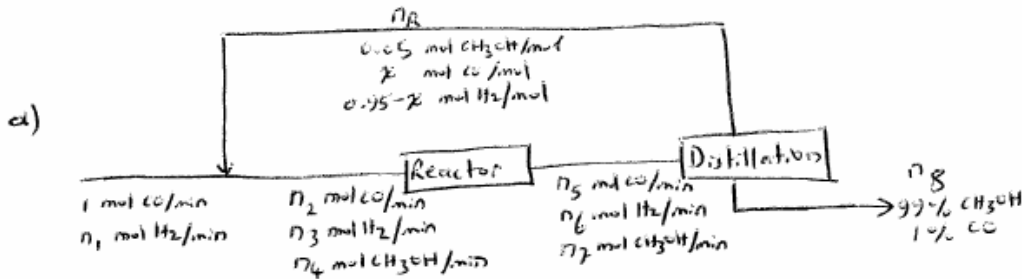 n_R
0.05 mol CH3OH/mol
x mol CO/mol
0.95-x mol H2/mol
a)
Reactor
Distillation
1 mol CO/min
n1 mol H2/min
n2 mol CO/min
n3 mol H2/min
n4 mol CH3OH/min
n5 mol CO/min
n6 mol H2/min
n7 mol CH3OH/min
n8
99% CH3OH
1% CO